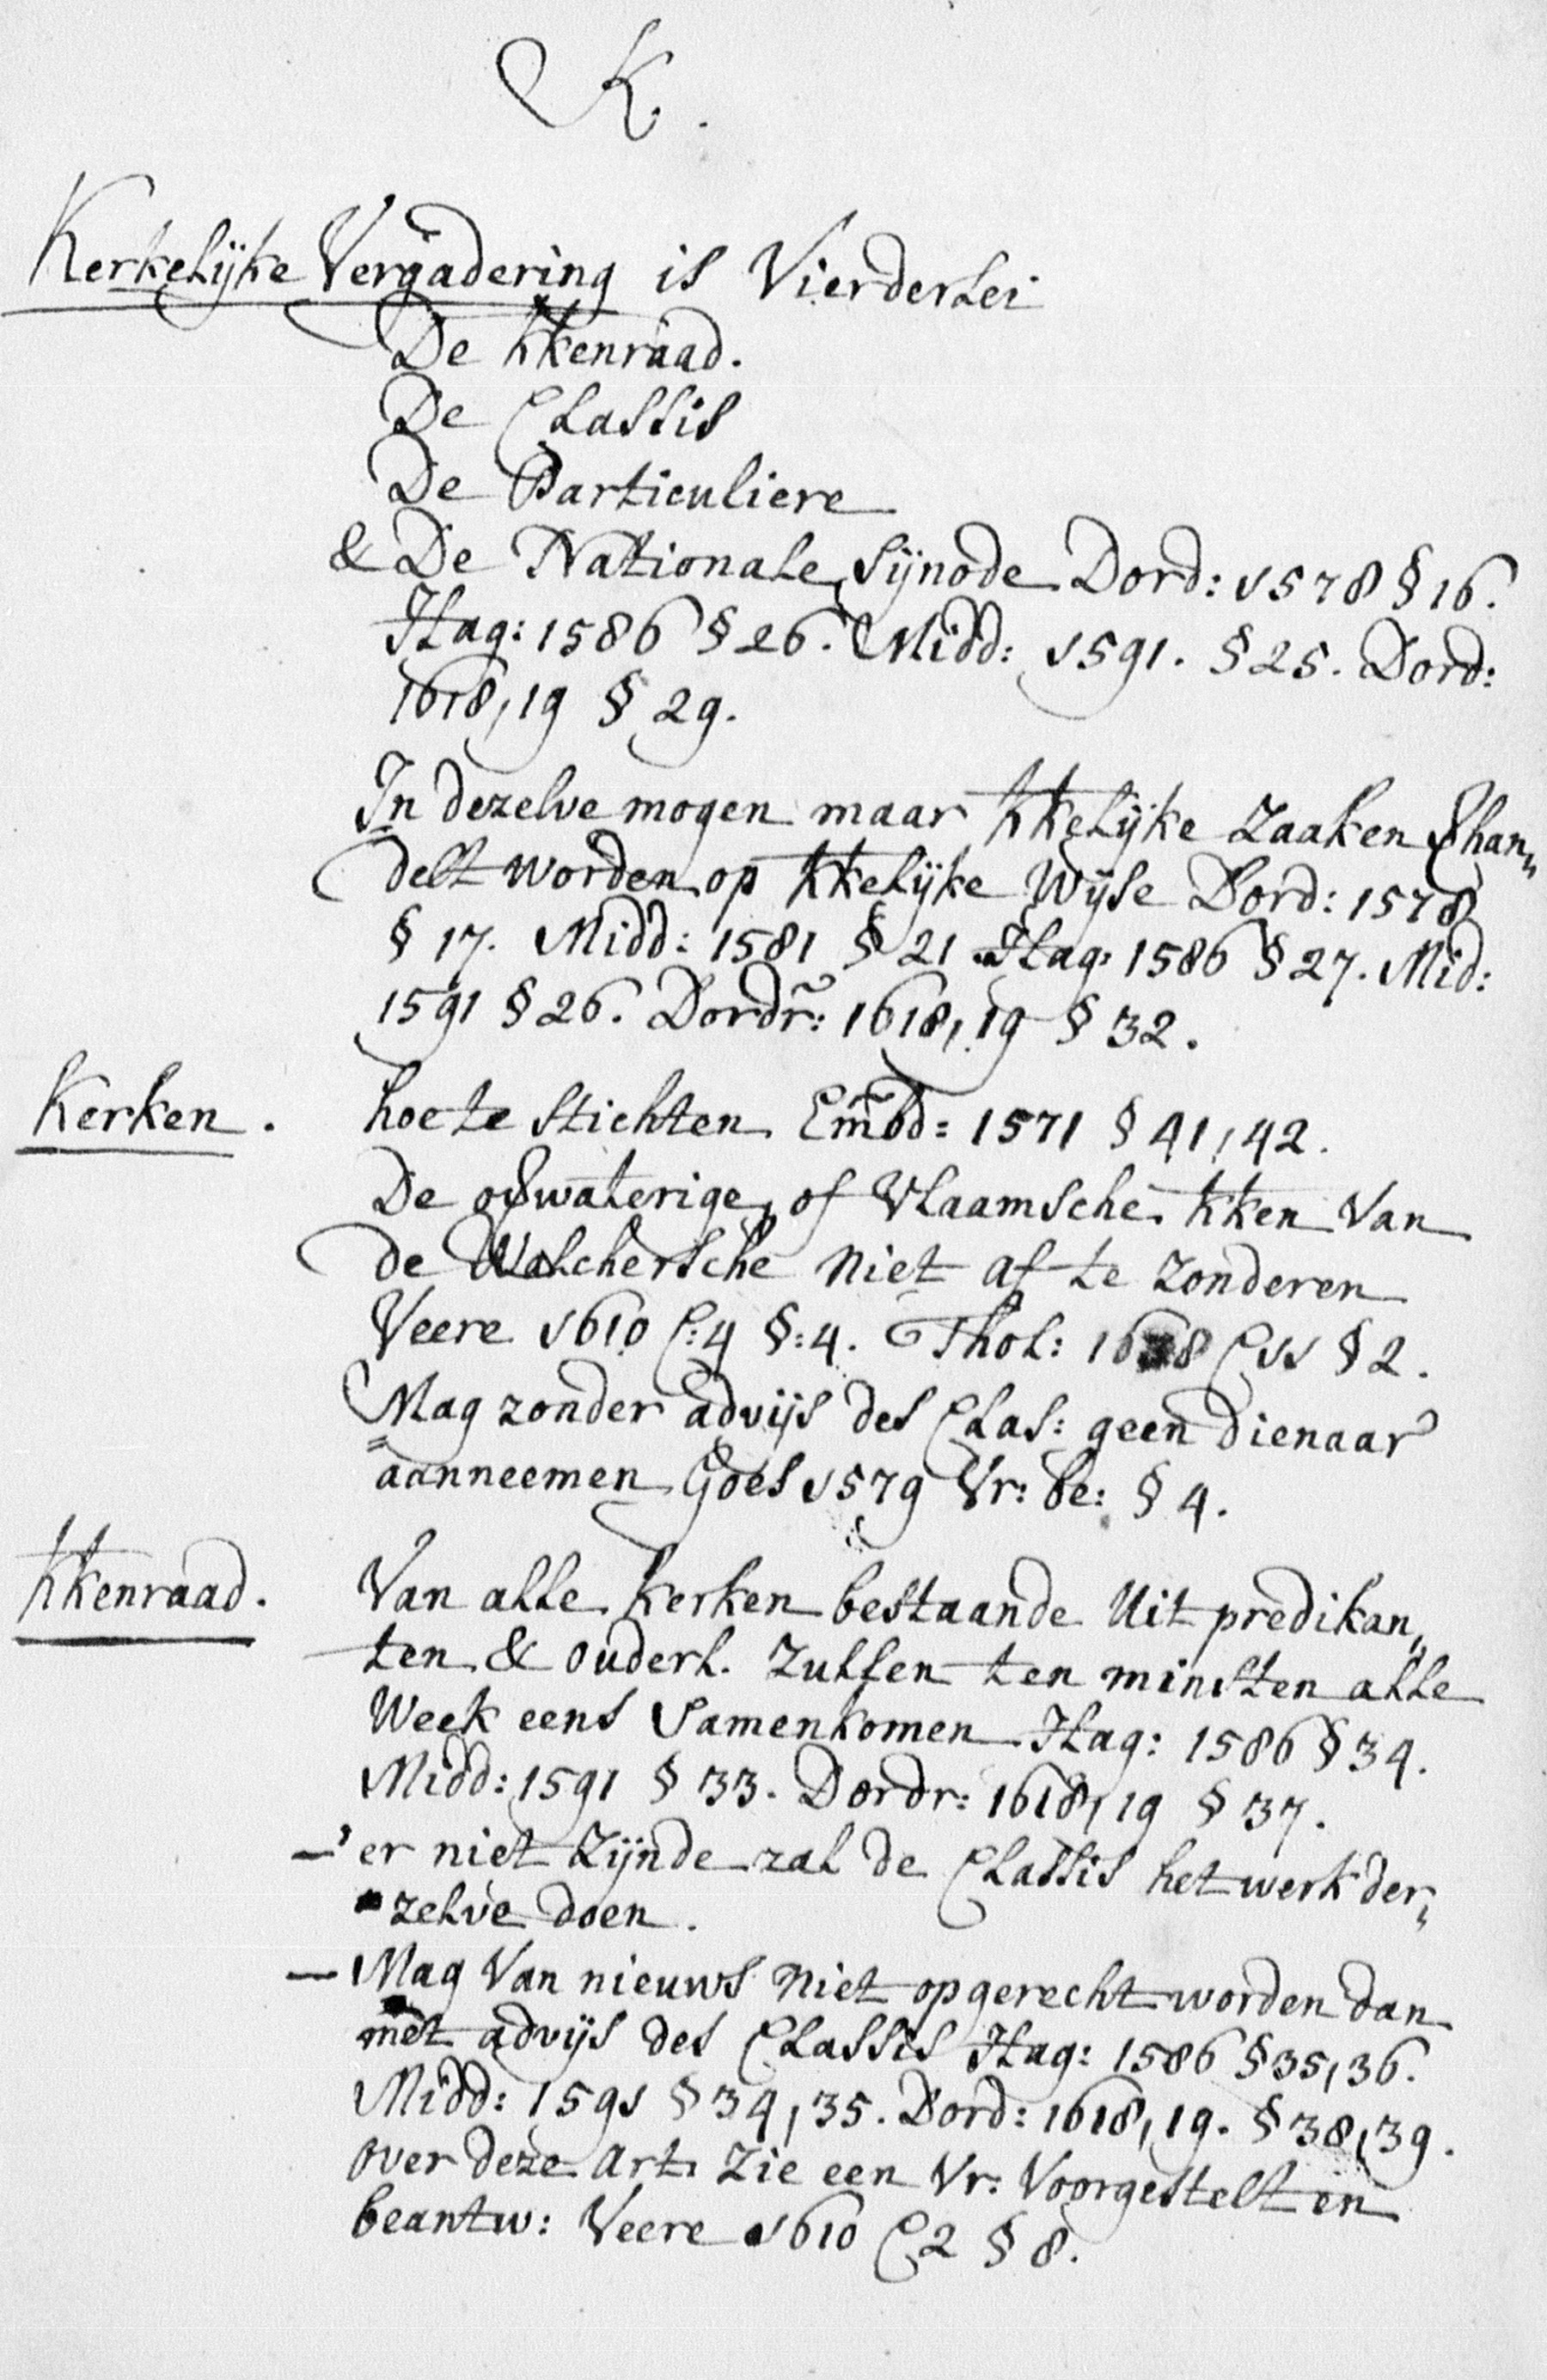 K.
Kerkelijke Vergadering is Vierderlei
De kkenraad.
De Classis
De Particuliere
& De Nationale Sijnode Dord: 1578 § 16.
Hag: 1586 § 26. Midd: 1591. § 25. Dord:
1618,19 § 29.
In dezelve mogen maar kkelijke zaaken han„
delt worden op kkelijke Wijse Dord: 1578
§ 17. Midd: 1581 § 21 Hag: 1586 § 27. Mid:
1591 § 26. Dordr: 1618,19 § 32.
Kerken. hoe te stichten Embd: 1571 § 41,42.
De of Vlaamsche kken Van
de Walchersche niet af te zonderen
Veere 1610 C:4 §:4. Thol: C 11 § 2.
Mag zonder advijs des Clas: geen dienaar
aanneemen Goes 1579 Vr: be: § 4.
kkenraad. Van alle kerken bestaande Uit predikan„
ten & ouderl. zullen ten minsten alle
Week eens Samenkomen Hag: 1586 § 34.
Midd: 1591 § 33. Dordr: 1618,19 § 37.
—'er niet zijnde zal de Classis het werk der„
zelve doen.
— Mag Van nieuws niet opgerecht worden dan
met advijs des Classis Hag: 1586 § 35,36.
Midd: 1591 § 34,35. Dord: 1618,19. § 38,39.
over deze Art. Zie een Vr: Voorgestelt en
beantw: Veere 1610 C 2 § 8.